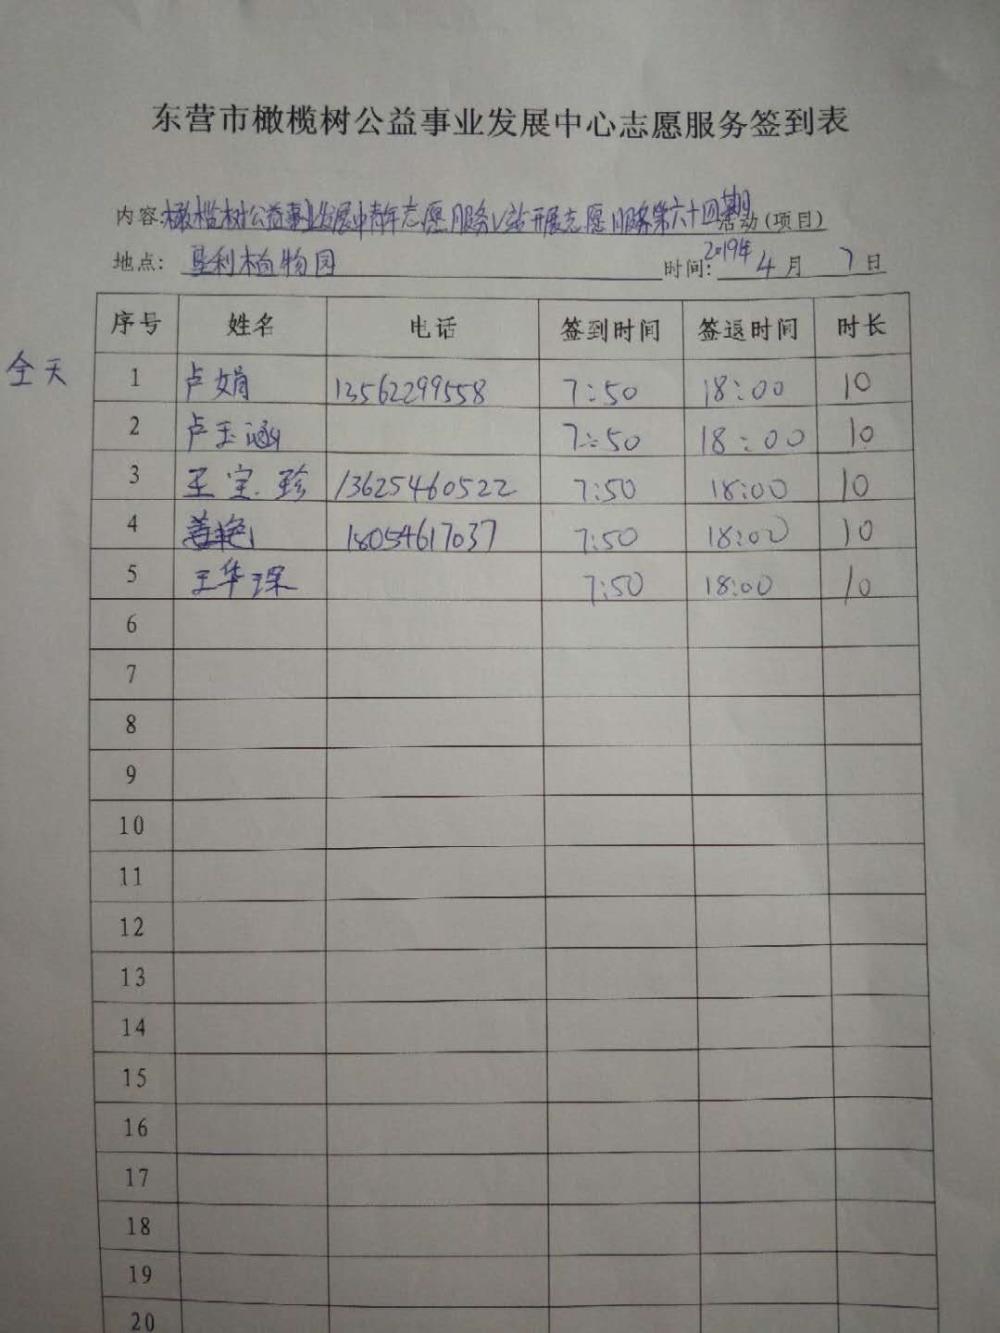 东营市橄榄树公益事业发展中心志愿服务签到表
内容:橄榄树公益事业发展中青年志愿服务V站开展志愿服务第六十四期活动(项目)
地点: 垦利植物园 时间: 2019年 4月 7日
序号 姓名 电话 签到时间 签退时间 时长
全天 1 卢娟 13562299558 7:50 18:00 10
2 卢玉涵 7:50 18:00 10
3 王宝珍 13625460522 7:50 18:00 10
4 18054617037 7:50 18:00 10
5 王华琛 7:50 18:00 10
6
7
8
9
10
11
12
13
14
15
16
17
18
19
20